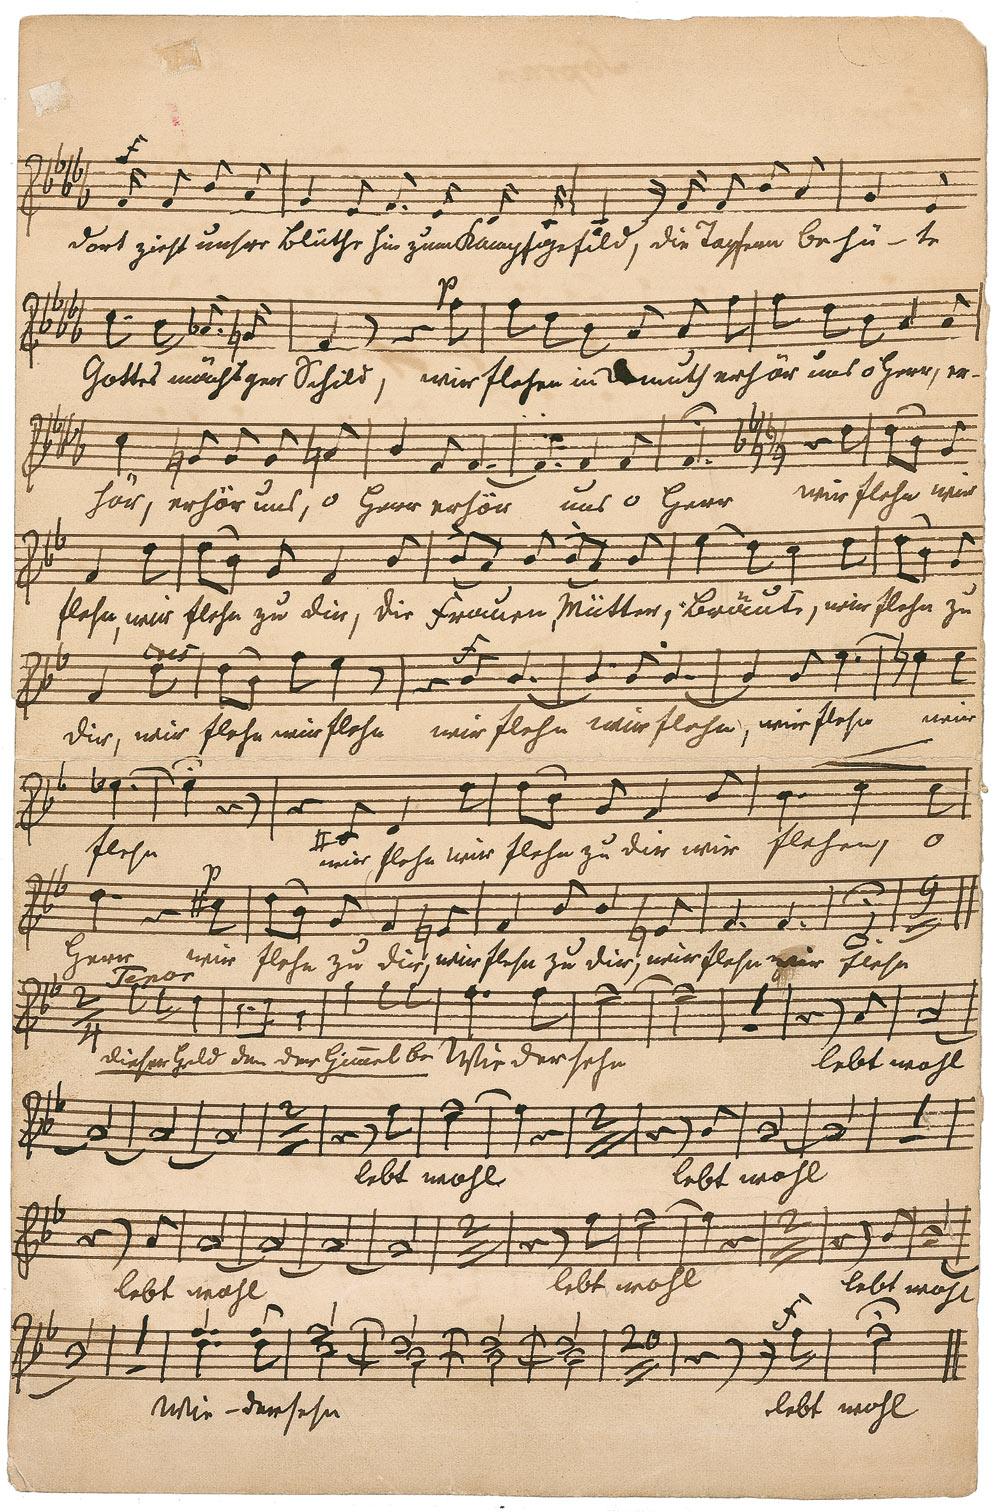 F
dort zieht unsre Blüthe hin zum Kampfgefild, die Tapfern behü-te
p
Gottes mächt'ger Schild, wir flehen in Demuth erhör uns o Herr, er-
hör, erhör uns, o Herr erhör uns o Herr wir flehn wir
flehn, wir flehn zu dir, die Frauen, Mütter, Bräute, wir flehn zu
cris
F
dir, wir flehn wir flehn wir flehn wir flehn, wir flehn wir
flehn wir flehn wir flehn zu dir wir flehen, o
p
Herr wir flehn zu dir, wir flehn zu dir, wir flehn wir flehn
9
Tenor
2
4
dieser Held den der Himmel be Wiedersehn lebt wohl
1
2
2
1
lebt wohl lebt wohl
2
2
lebt wohl lebt wohl lebt wohl
1
20
F
Wie-dersehn lebt wohl